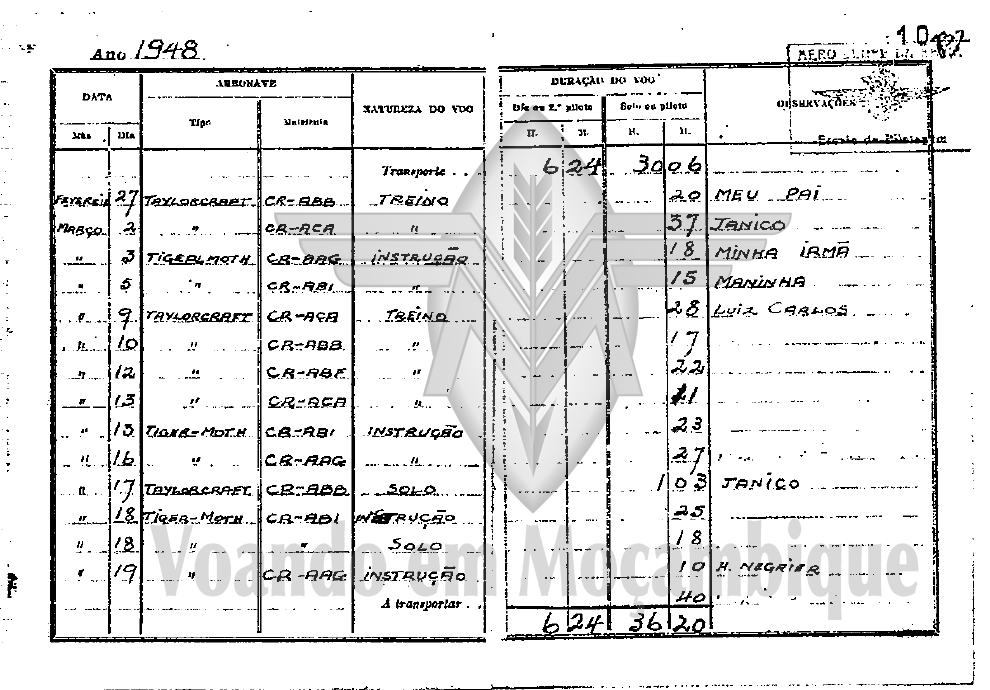 10
Ano 1948
AERO
DATA AERONAVE NATUREZA DO VOO DURAÇÃO DO VOO OBSERVAÇÕES
Mês Dia Tipo Matrícula Dle ou 2.º piloto Solo ou piloto
H. M. H. M.
Escola de Pilotagem
Transporte . . . 6 24 30 06
FEVEREIR 27 TAYLORCRAFT CR-ABB TREINO 20 MEU PAI
MARÇO 2 " CR-ACA " 37 JANICO
" 3 TIGER MOTH CR-AAG INSTRUÇÃO 18 MINHA IRMÃ
" 5 " CR-ABI " 15 MANINHA
" 9 TAYLORCRAFT CR-ACA TREINO 28 LUIZ CARLOS
" 10 " CR-ABB " 17
" 12 " CR-ABF " 22
" 13 " CR-ACA " 21
" 15 TIGER-MOTH CR-ABI INSTRUÇÃO 23
" 16 " CR-AAG " 27
" 17 TAYLORCRAFT CR-ABB SOLO 1 03 JANICO
" 18 TIGER-MOTH CR-ABI INSTRUÇÃO 25
" 18 " " SOLO 18
" 19 " CR-AAG INSTRUÇÃO 10 H. NEGRIER
A transportar . . 40
6 24 36 20
Voando em Moçambique